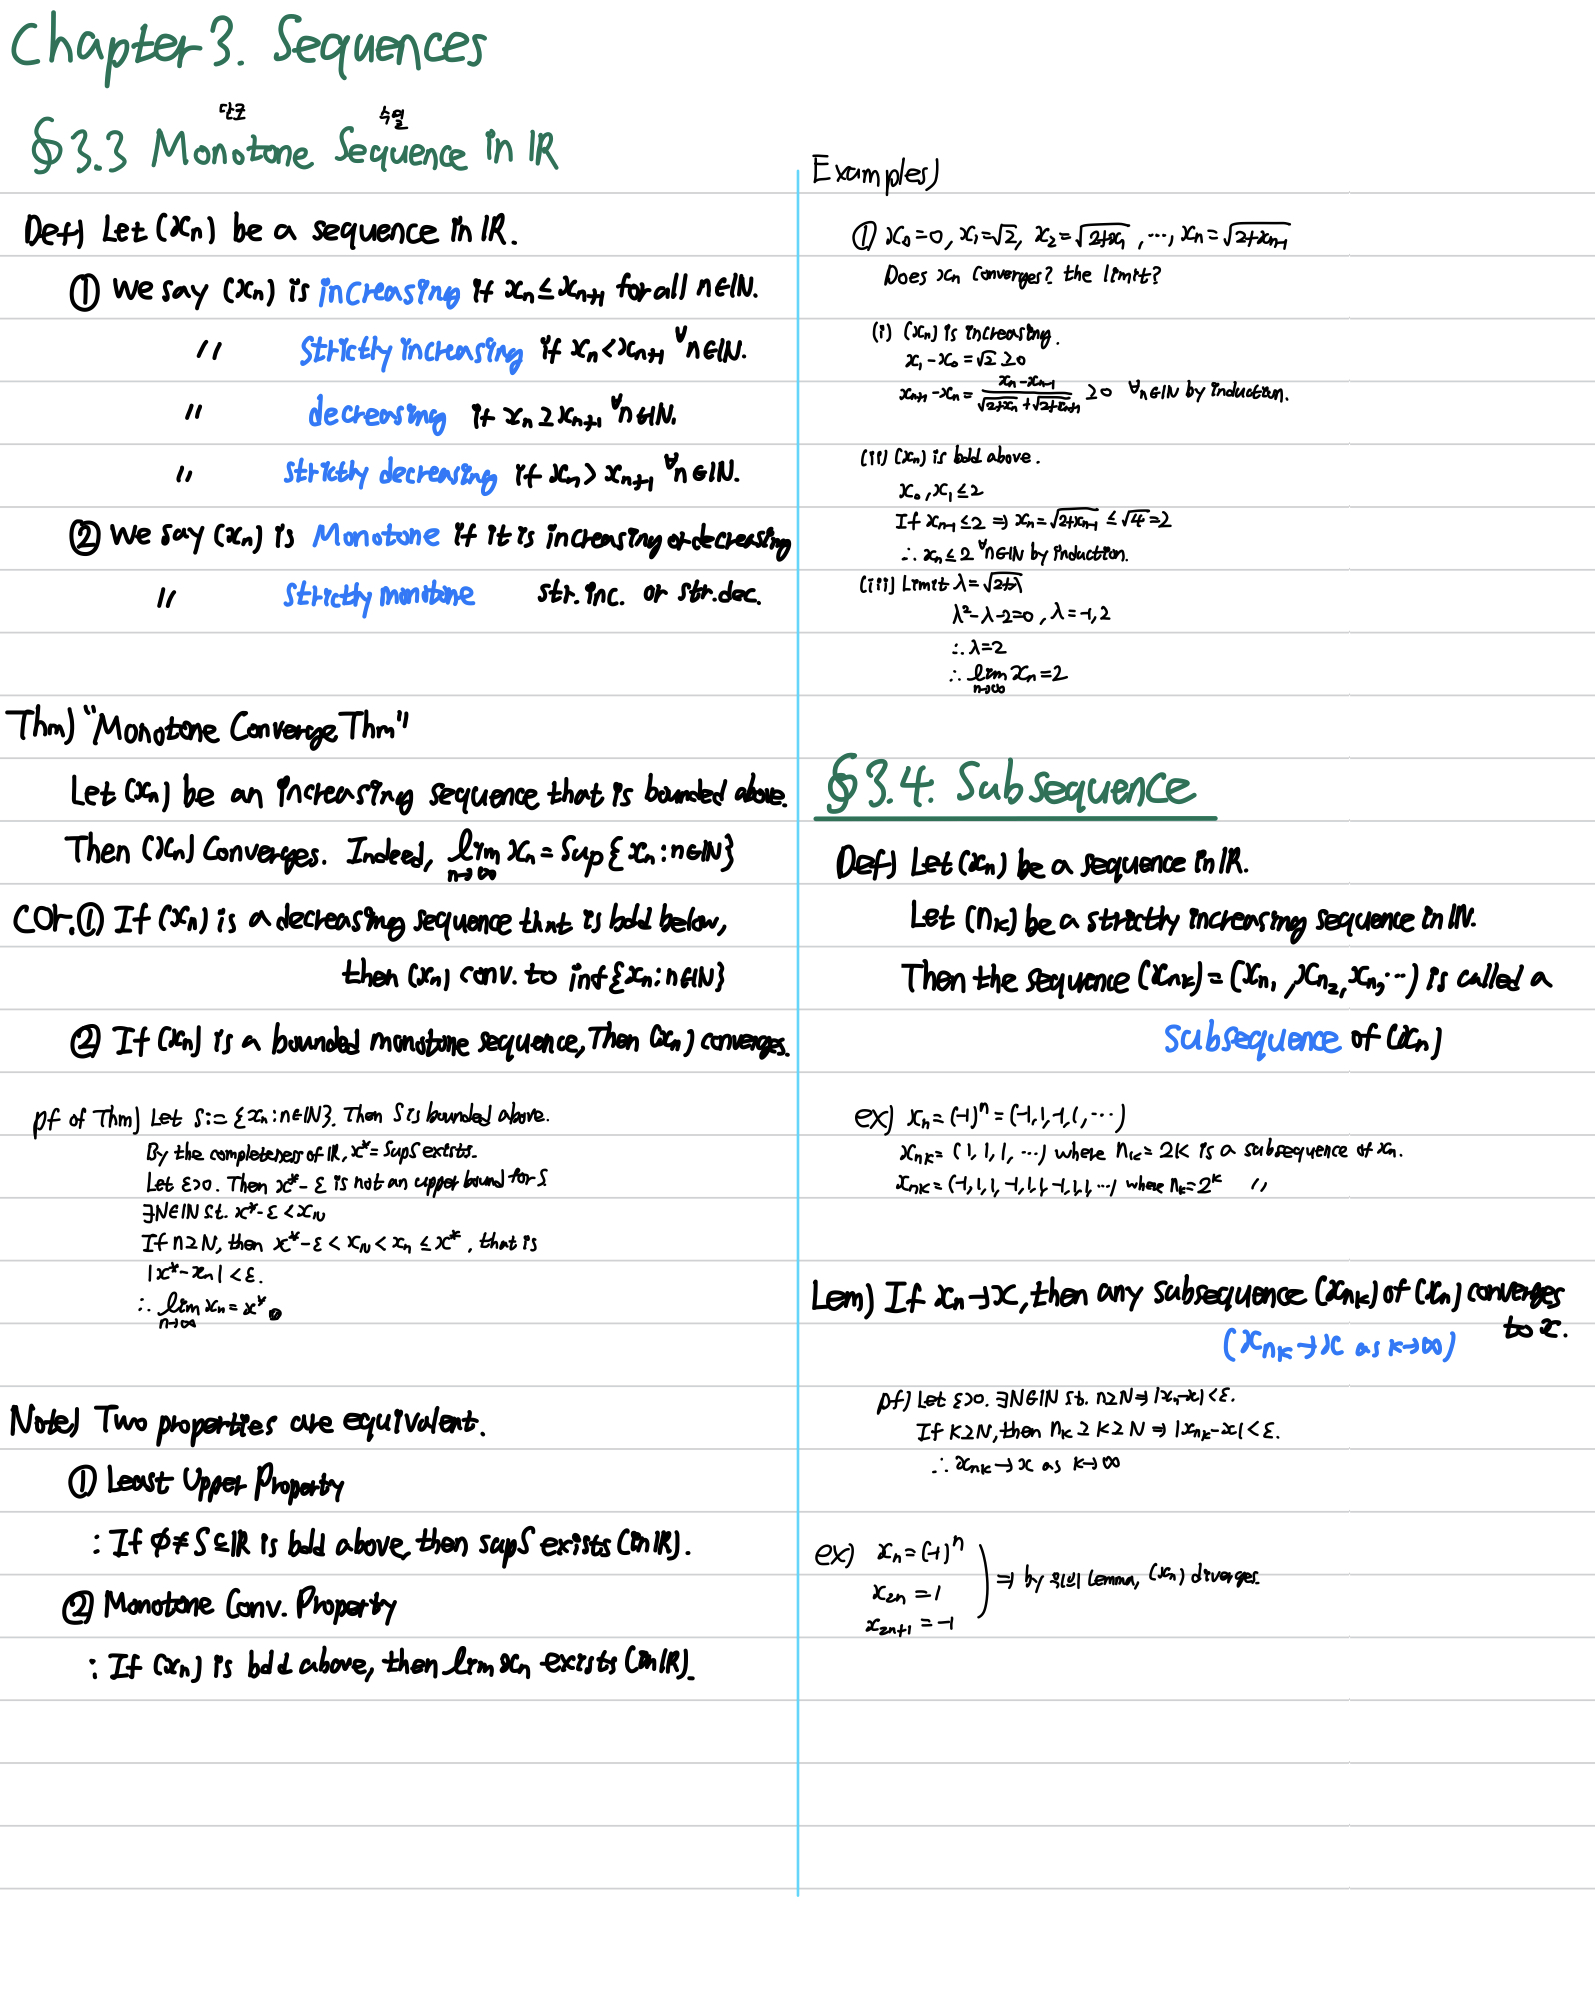 Chapter 3. Sequences
단조 수열
§3.3 Monotone Sequence in ℝ
Def) Let (xₙ) be a sequence in ℝ.
① We say (xₙ) is increasing if xₙ ≤ xₙ₊₁ for all n∈ℕ.
〃 strictly increasing if xₙ < xₙ₊₁ ∀n∈ℕ.
〃 decreasing if xₙ ≥ xₙ₊₁ ∀n∈ℕ.
〃 strictly decreasing if xₙ > xₙ₊₁ ∀n∈ℕ.
② We say (xₙ) is Monotone if it is increasing or decreasing
〃 strictly monotone str.inc. or str.dec.
Thm) "Monotone Converge Thm"
Let (xₙ) be an increasing sequence that is bounded above.
Then (xₙ) Converges. Indeed, lim_{n→∞} xₙ = Sup{xₙ : n∈ℕ}
Cor.① If (xₙ) is a decreasing sequence that is bdd below,
then (xₙ) conv. to inf{xₙ : n∈ℕ}
② If (xₙ) is a bounded monotone sequence, Then (xₙ) converges.
pf of Thm) Let S := {xₙ : n∈ℕ}. Then S is bounded above.
By the completeness of ℝ, x* = Sup S exists.
Let ε>0. Then x*-ε is not an upper bound for S
∃N∈ℕ s.t. x*-ε < x_N
If n≥N, then x*-ε < x_N < xₙ ≤ x*, that is
|x*-xₙ| < ε.
∴ lim_{n→∞} xₙ = x*
Note) Two properties are equivalent.
① Least Upper Property
: If ∅≠S⊆ℝ is bdd above, then sup S exists (in ℝ).
② Monotone Conv. Property
: If (xₙ) is bdd above, then lim xₙ exists (in ℝ).
Examples)
① x₀=0, x₁=√2, x₂=√(2+x₁), ⋯, xₙ=√(2+xₙ₋₁)
Does xₙ converges? the limit?
(i) (xₙ) is increasing.
x₁-x₀=√2≥0
xₙ₊₁-xₙ = (xₙ-xₙ₋₁)/(√(2+xₙ)+√(2+xₙ₊₁)) ≥0 ∀n∈ℕ by induction.
(ii) (xₙ) is bdd above.
x₀, x₁ ≤ 2
If xₙ₋₁≤2 ⇒ xₙ=√(2+xₙ₋₁) ≤ √4=2
∴ xₙ≤2 ∀n∈ℕ by induction.
(iii) Limit λ=√(2+λ)
λ²-λ-2=0, λ=-1,2
∴ λ=2
∴ lim_{n→∞} xₙ=2
§3.4. Subsequence
Def) Let (xₙ) be a sequence in ℝ.
Let (n_k) be a strictly increasing sequence in ℕ.
Then the sequence (x_{n_k}) = (x_{n₁}, x_{n₂}, x_{n₃}, ⋯) is called a
subsequence of (xₙ)
ex) xₙ=(-1)ⁿ=(-1,1,-1,1,⋯)
x_{n_k}=(1,1,1,⋯) where n_k=2k is a subsequence of xₙ.
x_{n_k}=(-1,1,1,-1,1,1,-1,1,1,⋯) where n_k=2^k 〃
Lem) If xₙ→x, then any subsequence (x_{n_k}) of (xₙ) converges
to x.
(x_{n_k}→x as k→∞)
pf) Let ε>0. ∃N∈ℕ s.t. n≥N⇒|xₙ-x|<ε.
If k≥N, then n_k≥k≥N ⇒ |x_{n_k}-x|<ε.
∴ x_{n_k}→x as k→∞
ex) xₙ=(-1)ⁿ
x₂ₙ=1
x₂ₙ₊₁=-1
⇒ by 위의 Lemma, (xₙ) diverges.